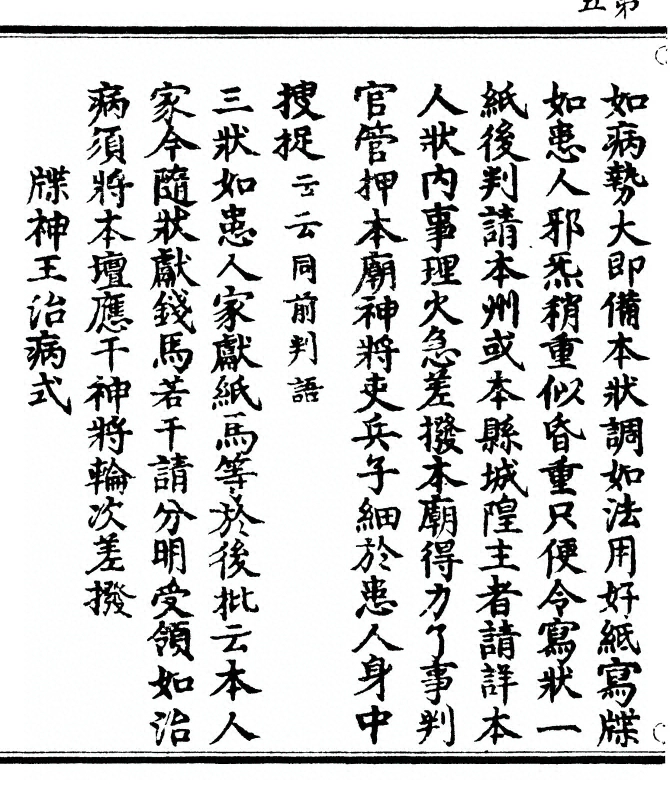 第五
如病勢大即備本狀調如法用好紙寫牒
如患人邪炁稍重似昏重只便令寫狀一
紙後判請本州或本縣城隍主者請詳本
人狀內事理火急差撥本廟得力了事判
官管押本廟神將吏兵子細於患人身中
搜捉云云同前判語
三狀如患人家獻紙馬等於後批云本人
家今隨狀獻錢馬若干請分明受領如治
病須將本壇應干神將輪次差撥
牒神王治病式